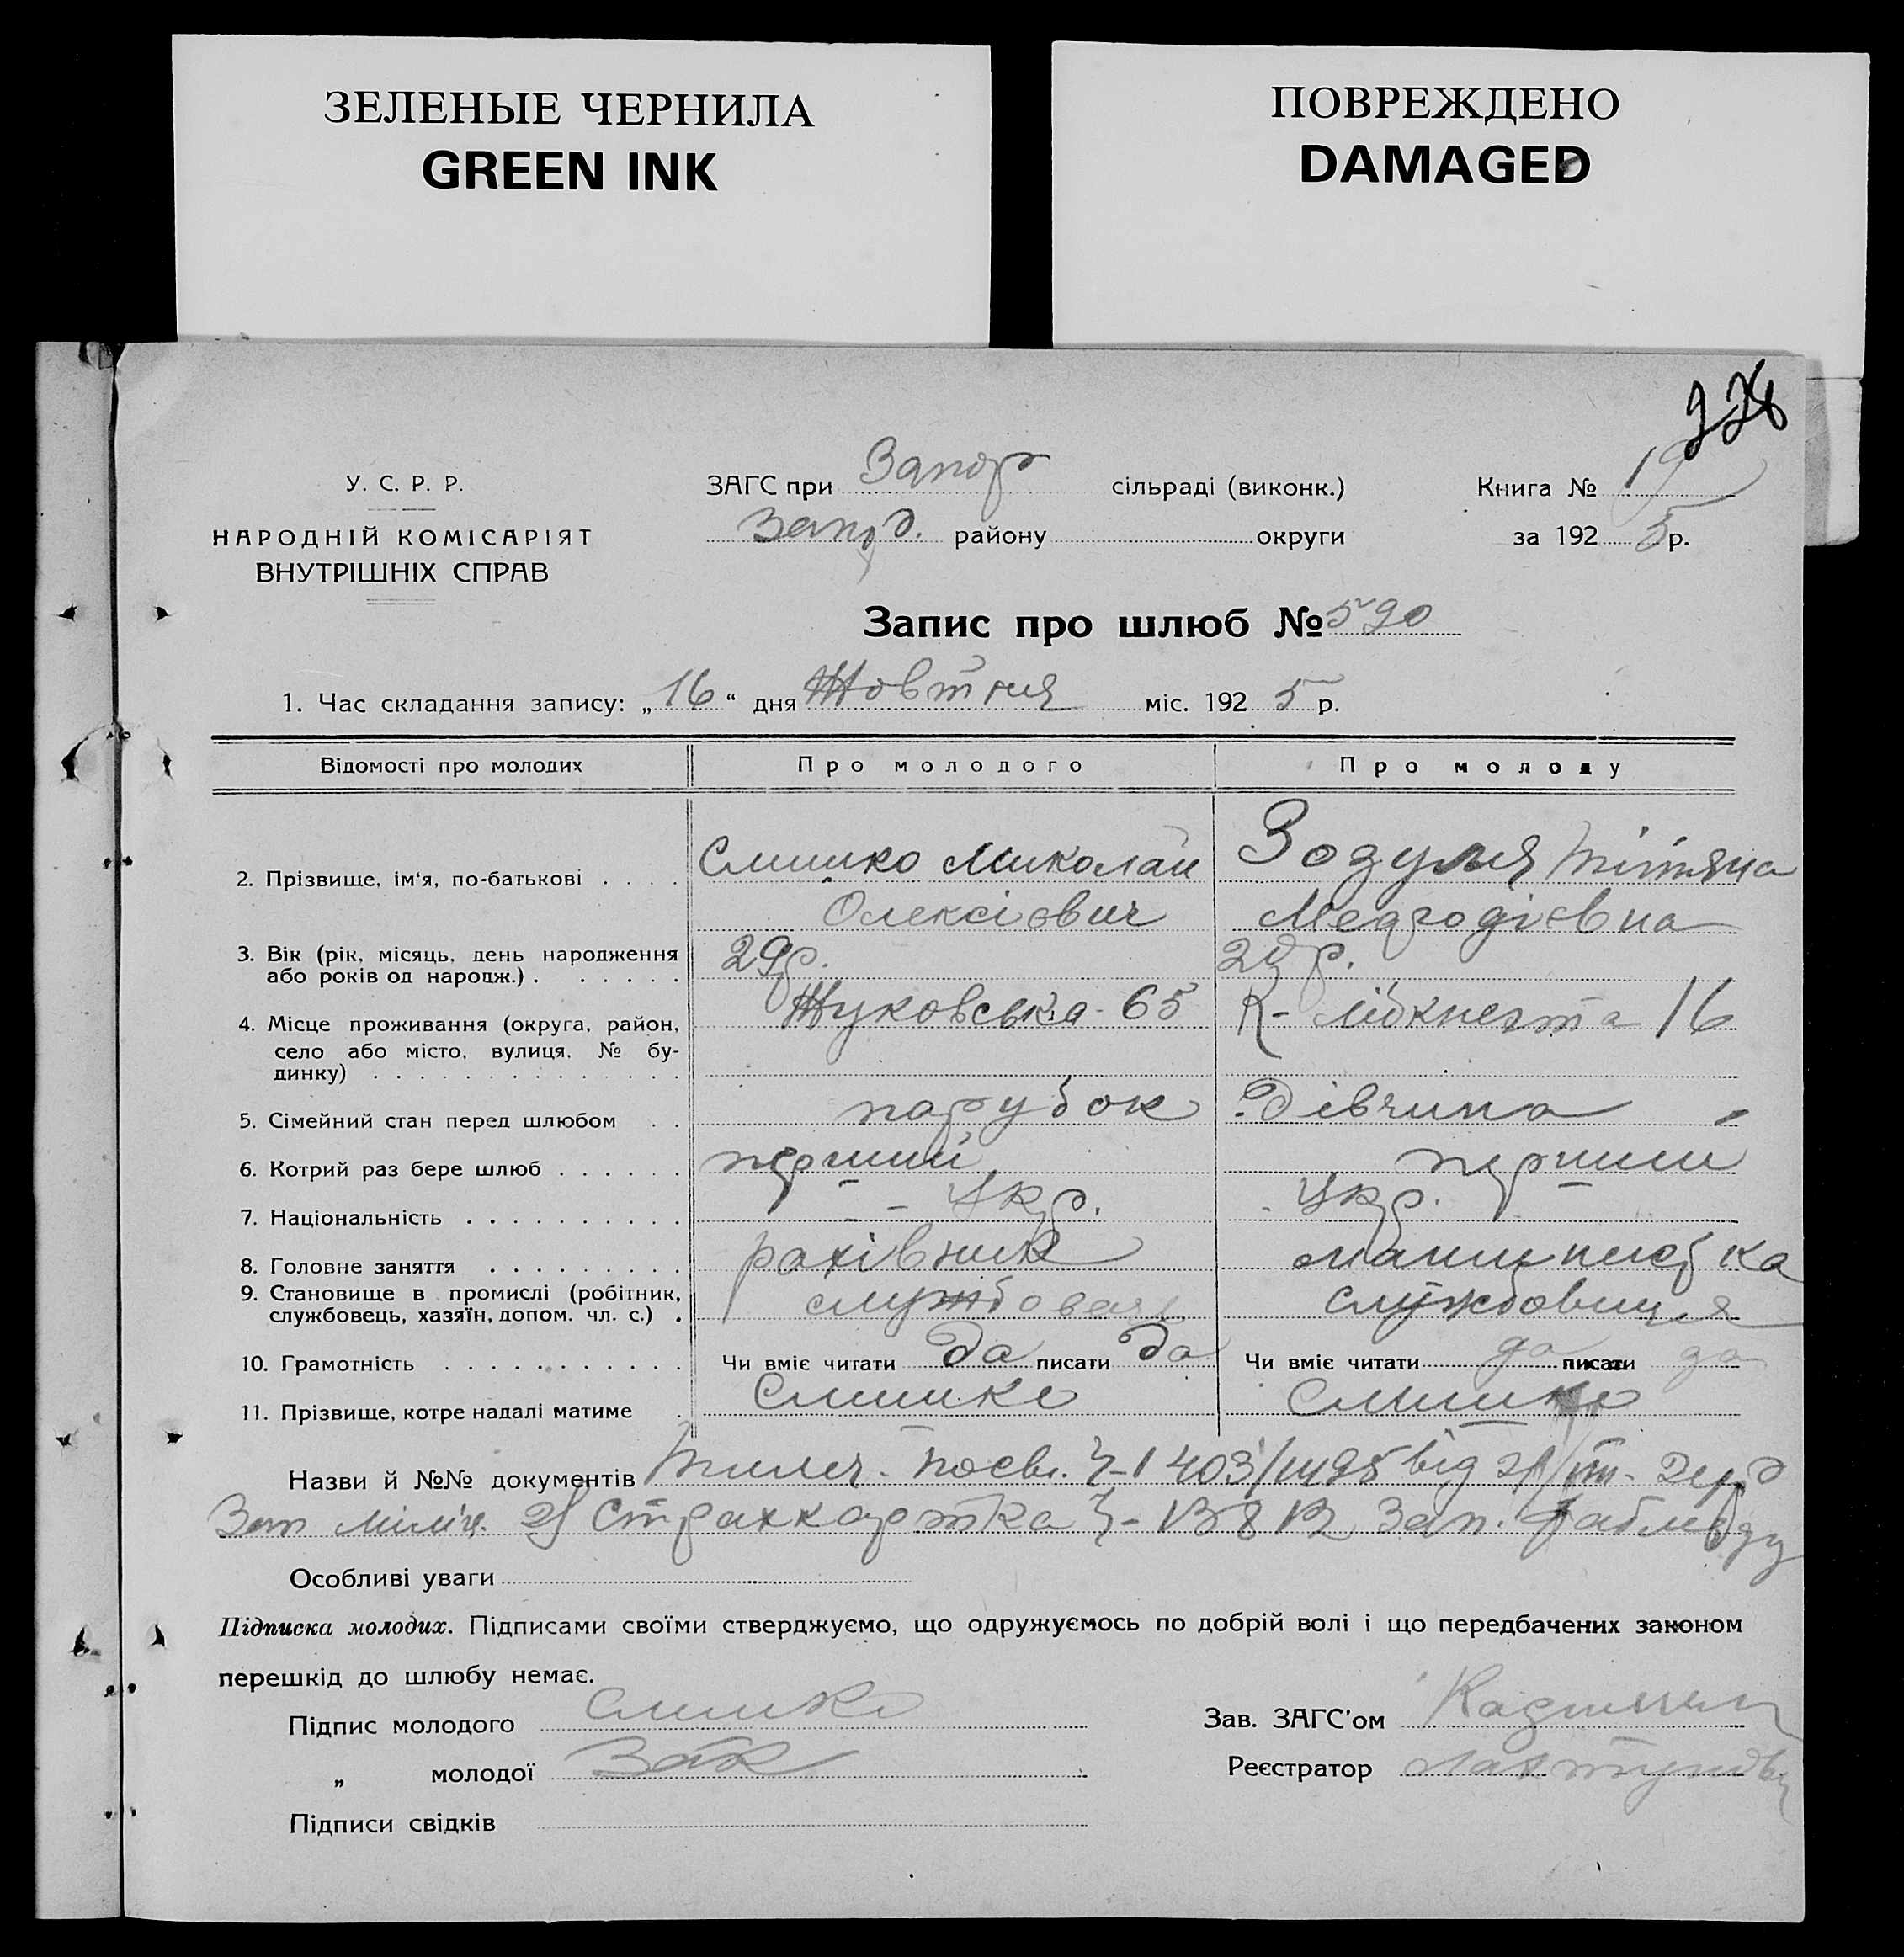 ЗЕЛЕНЫЕ ЧЕРНИЛА
GREEN INK
ПОВРЕЖДЕНО
DAMAGED
У. С. Р. Р.
НАРОДНІЙ КОМІСАРІЯТ
ВНУТРІШНІХ СПРАВ
ЗАГС при Запор сільраді (виконк.)
району округи
Книга № 19
за 1925 р.
Запис про шлюб № 590
1. Час складання запису: „16“ дня Жовтня міс. 1925 р.
Відомості про молодих Про молодого Про молоду
2. Прізвище, ім'я, по-батькові . . . . Слишко Миколай
Олексієвич
3. Вік (рік, місяць, день народження
або років од народж.) . . . . . .
4. Місце проживання (округа, район, Жуковська-65 К-Лібкнехта 16
село або місто, вулиця, № бу-
динку) . . . . . . . . . . . . . .
5. Сімейний стан перед шлюбом . . парубок Дівчина
6. Котрий раз бере шлюб . . . . . . перший перший
7. Національність . . . . . . . . . . Укр. Укр.
8. Головне заняття . . . . . . . . . рахівник
9. Становище в промислі (робітник,
службовець, хазяїн, допом. чл. с.) . службовець службовиця
10. Грамотність . . . . . . . . . . . Чи вміє читати да писати да Чи вміє читати да писати да
11. Прізвище, котре надалі матиме . Слишко Слишко
Назви й №№ документів
Страхкартка
Особливі уваги
Підписка молодих. Підписами своїми стверджуємо, що одружуємось по добрій волі і що передбачених законом
перешкід до шлюбу немає.
Підпис молодого Слишко Зав. ЗАГС'ом
„ молодої Реєстратор
Підписи свідків